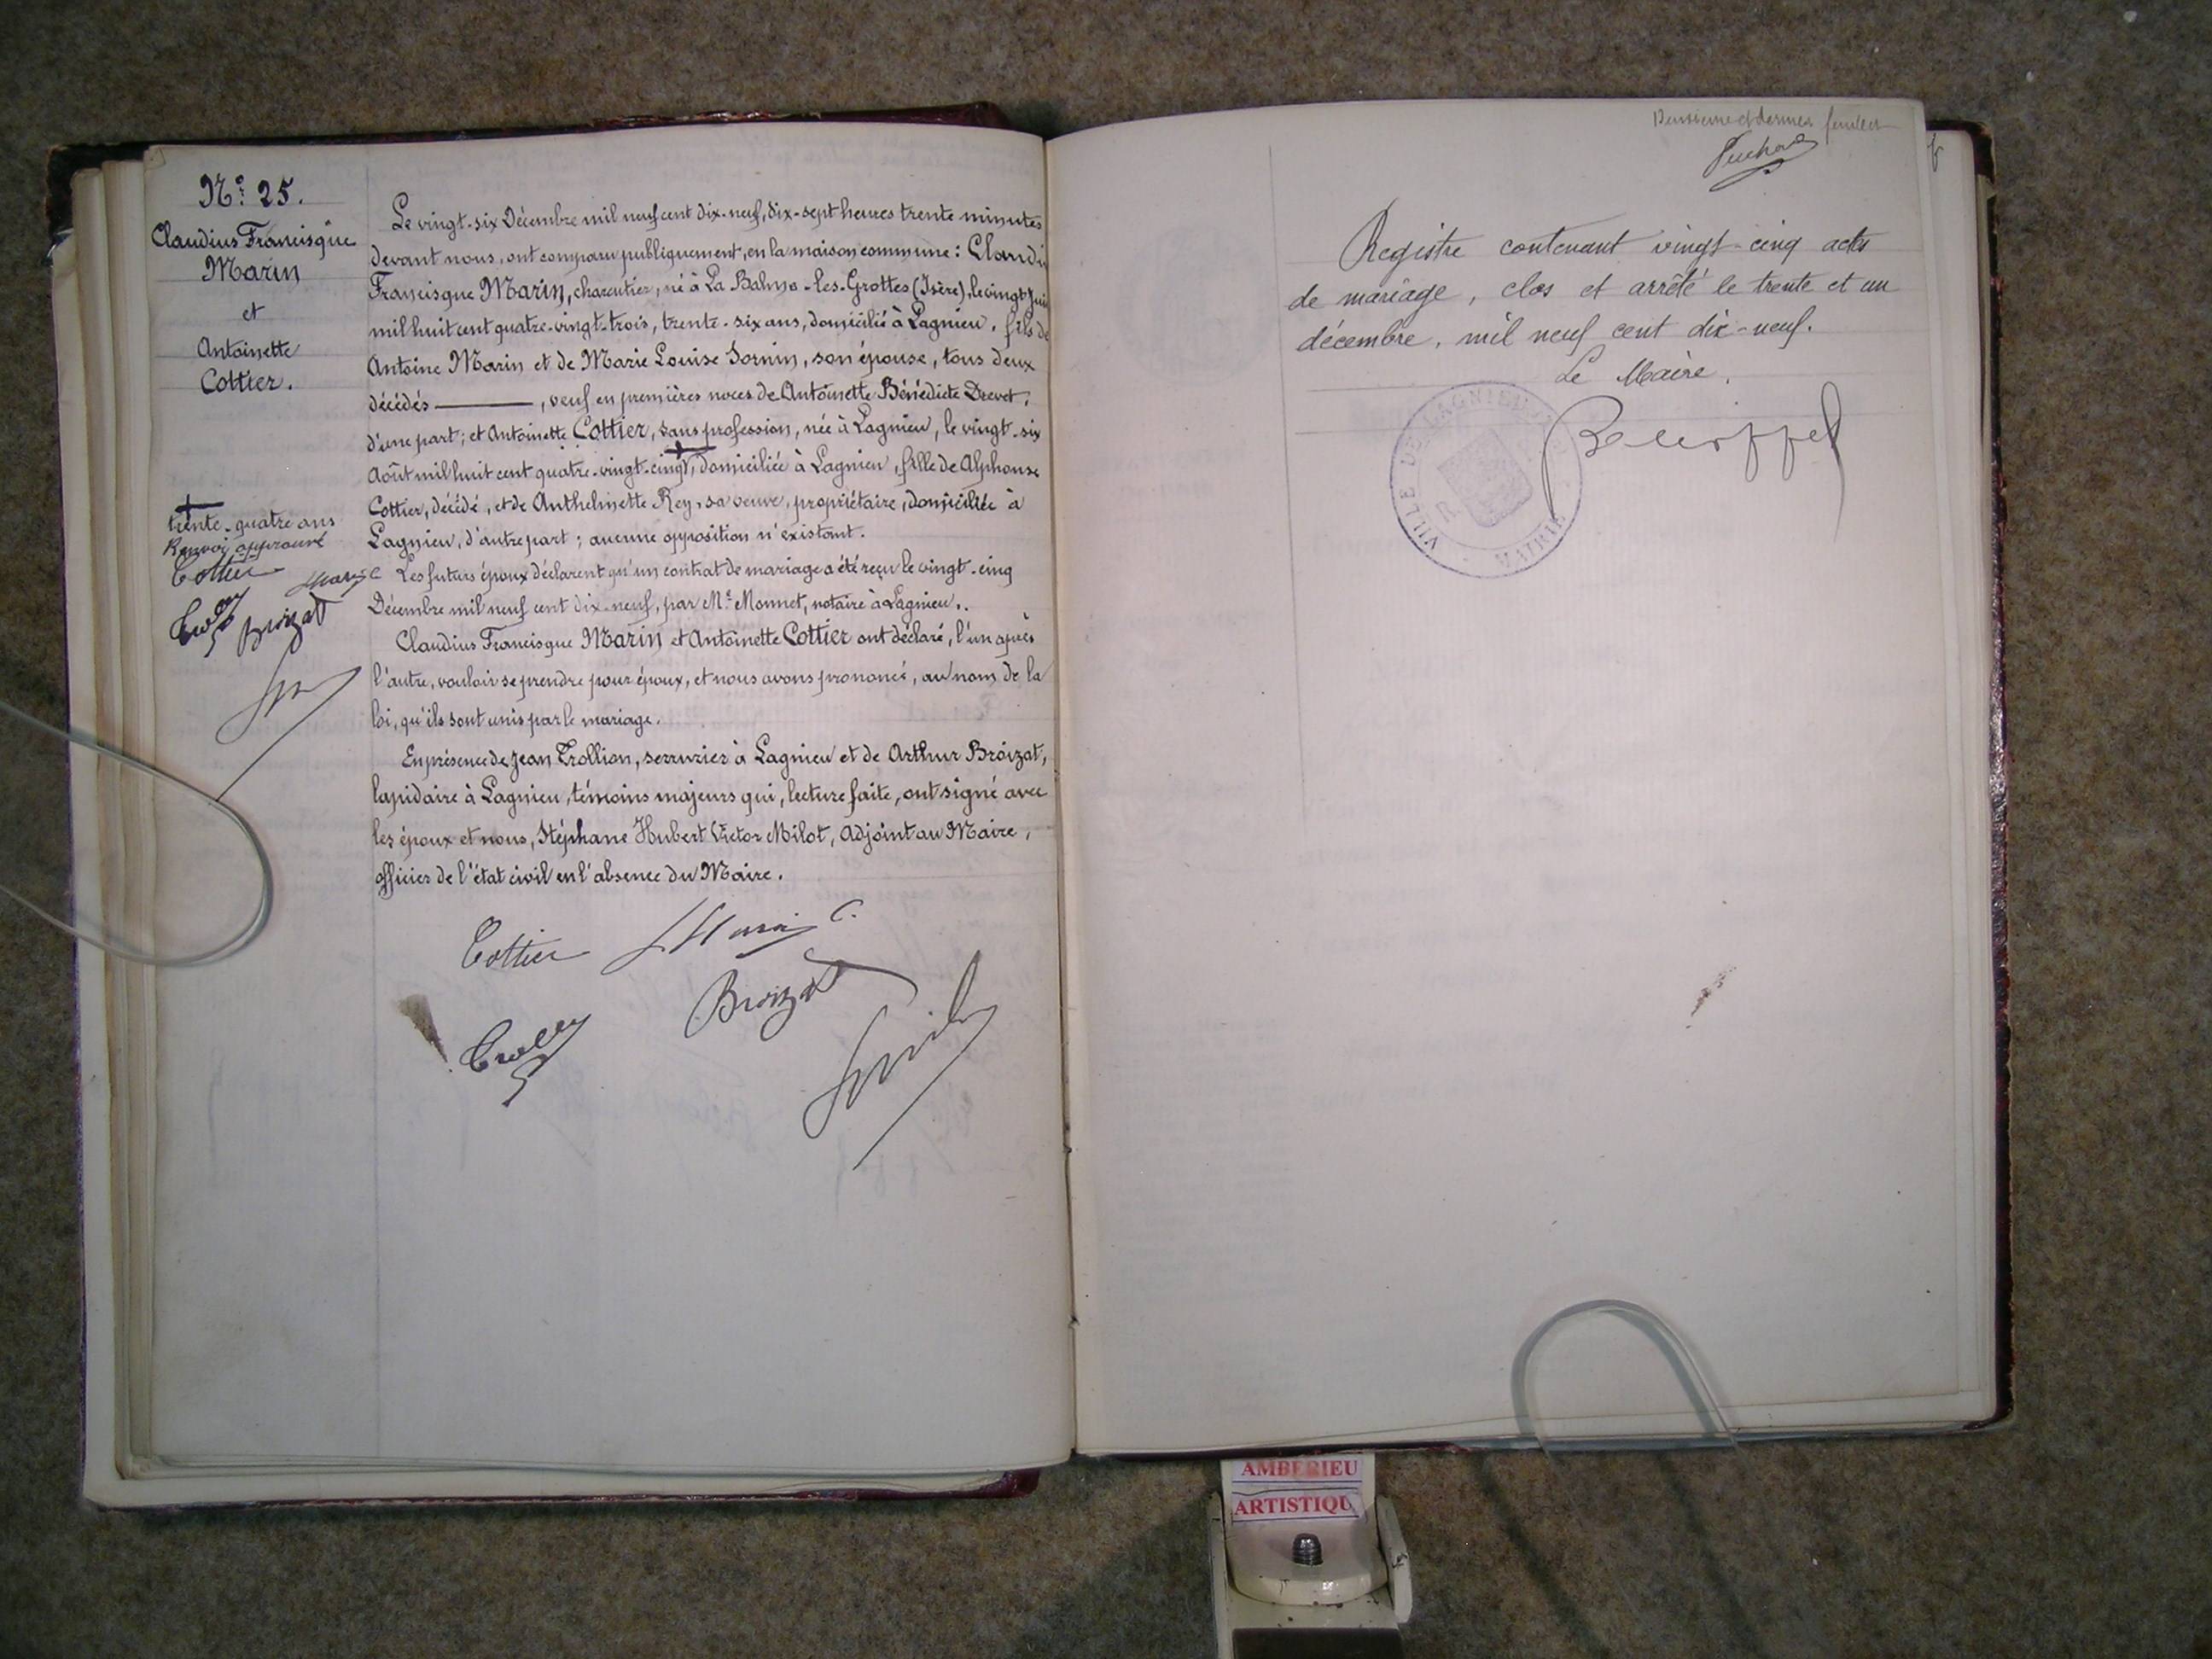 N° 25.
Claudius Francisque
Marin
et
Antoinette
Cottier.
Le vingt-six Décembre mil neuf cent dix-neuf, dix-sept heures trente minutes
devant nous, ont comparu publiquement, en la maison commune : Claudi
Francisque Marin, charcutier, né à La Balme-les-Grottes (Isère), le vingt Jui
mil huit cent quatre-vingt-trois, trente-six ans, domicilié à Lagnieu, fils de
Antoine Marin et de Marie Louise Sornin, son épouse, tous deux
décédés ———, veuf en premières noces de Antoinette Bénédicte Drevet,
d'une part ; et Antoinette Cottier, sans profession, née à Lagnieu, le vingt-six
Août mil huit cent quatre-vingt-cinq, domiciliée à Lagnieu, fille de Alphonse
Cottier, décédé, et de Anthelmette Rey, sa veuve, propriétaire, domiciliée à
Lagnieu, d'autre part ; aucune opposition n'existant.
Les futurs époux déclarent qu'un contrat de mariage a été reçu le vingt-cinq
Décembre mil neuf cent dix-neuf, par Me Monnet, notaire à Lagnieu.
Claudius Francisque Marin et Antoinette Cottier ont déclaré, l'un après
l'autre, vouloir se prendre pour époux, et nous avons prononcé, au nom de la
loi, qu'ils sont unis par le mariage.
En présence de Jean Trollion, serrurier à Lagnieu et de Arthur Broizat,
lapidaire à Lagnieu, témoins majeurs qui, lecture faite, ont signé avec
les époux et nous, Stéphane Hubert Victor Milot, Adjoint au Maire,
officier de l'état civil en l'absence du Maire.
trente-quatre ans
Renvoi approuvé
Cottier
Broizat
Cottier Marin C.
Broizat
feuillet
Registre contenant vingt-cinq actes
de mariage, clos et arrêté le trente et un
décembre, mil neuf cent dix-neuf.
Le Maire,
VILLE DE LAGNIEU
MAIRIE
R
AMBERIEU
ARTISTIQU